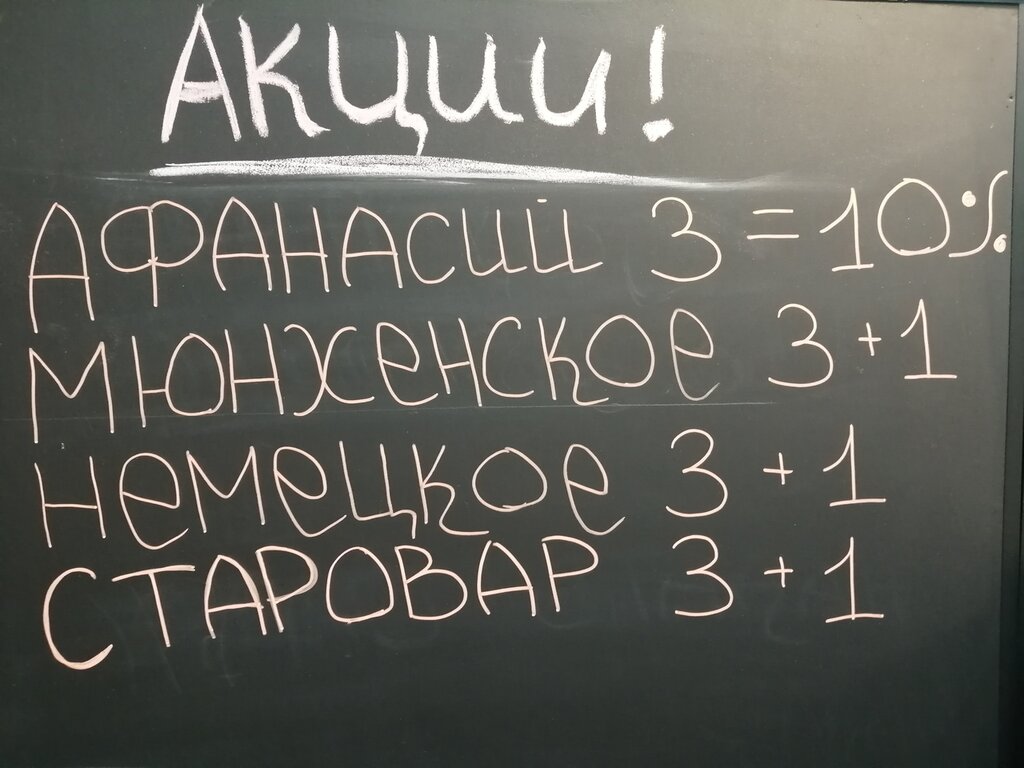 Акции!
АФАНАСИЙ 3 = 10%
МЮНХЕНСКОЕ 3 + 1
НЕМЕЦКОЕ 3 + 1
СТАРОВАР 3 + 1